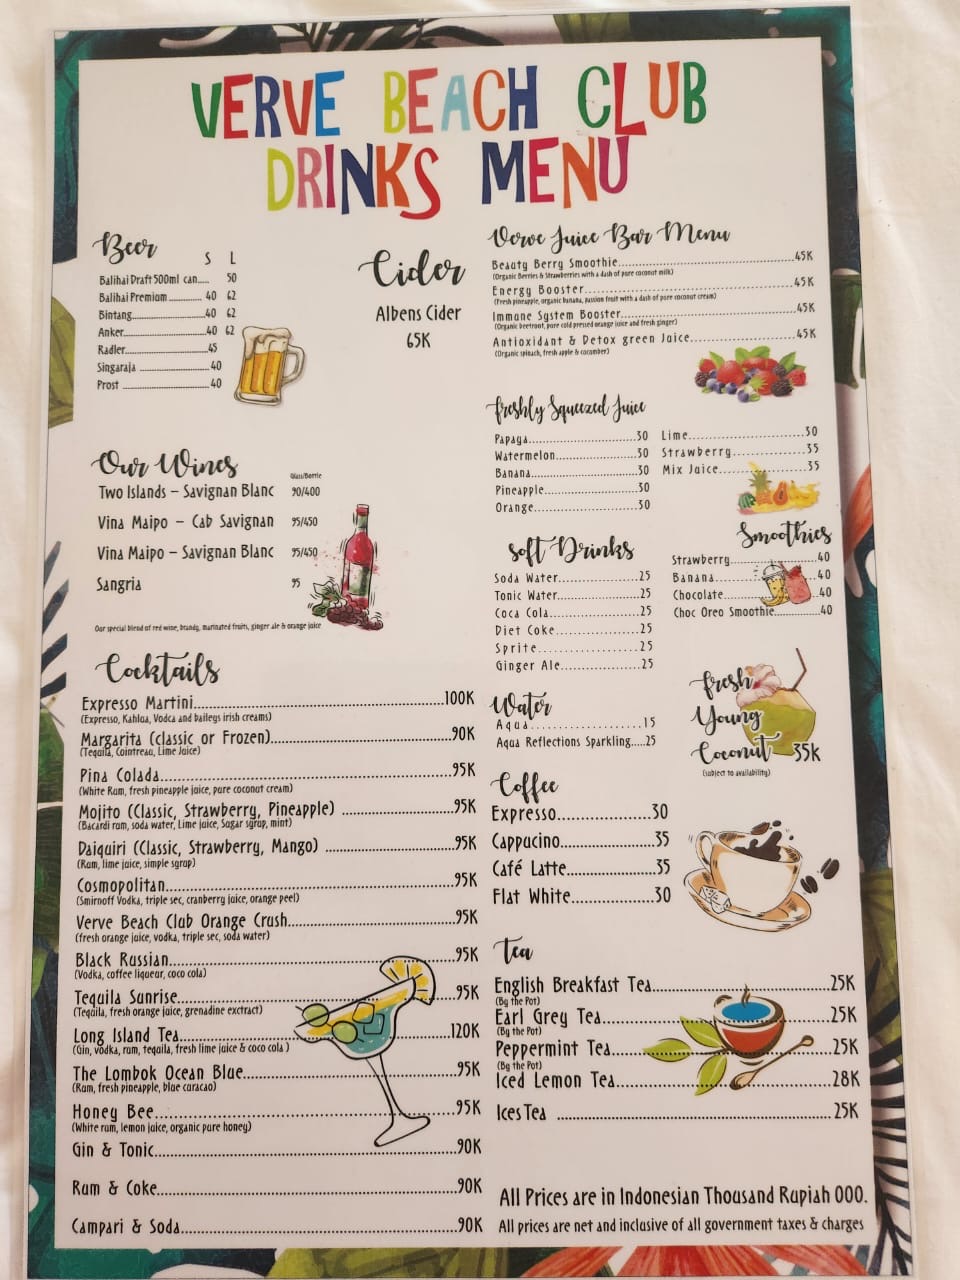 VERVE BEACH CLUB
DRINKS MENU
Beer
S L
Balihai Draft 500ml can..... 50
Balihai Premium ............. 40 62
Bintang........................40 62
Anker...........................40 62
Radler..........................45
Singaraja ......................40
Prost ...........................40
Cider
Albens Cider
65K
Our Wines
Glass/Bottle
Two Islands – Savignan Blanc 90/400
Vina Maipo – Cab Savignan 95/450
Vina Maipo – Savignan Blanc 95/450
Sangria 95
Our special blend of red wine, brandy, marinated fruits, ginger ale & orange juice
Cocktails
Expresso Martini..............................100K
(Expresso, Kahlua, Vodca and baileys irish creams)
Margarita (classic or Frozen)..............................90K
(Tequila, Cointreau, Lime Juice)
Pina Colada..............................95K
(White Rum, fresh pineapple juice, pure coconut cream)
Mojito (Classic, Strawberry, Pineapple) ....................95K
(Bacardi rum, soda water, Lime juice, Sugar syrup, mint)
Daiquiri (Classic, Strawberry, Mango) ....................95K
(Rum, lime juice, simple syrup)
Cosmopolitan..............................95K
(Smirnoff Vodka, triple sec, cranberry juice, orange peel)
Verve Beach Club Orange Crush..............................95K
(fresh orange juice, vodka, triple sec, soda water)
Black Russian..............................95K
(Vodka, coffee liqueur, coco cola)
Tequila Sunrise..............................95K
(Tequila, fresh orange juice, grenadine exctract)
Long Island Tea..............................120K
(Gin, vodka, rum, tequila, fresh lime juice & coco cola )
The Lombok Ocean Blue..............................95K
(Rum, fresh pineapple, blue curacao)
Honey Bee..............................95K
(White rum, lemon juice, organic pure honey)
Gin & Tonic..............................90K
Rum & Coke..............................90K
Campari & Soda..............................90K
Verve Juice Bar Menu
Beauty Berry Smoothie..............................45K
(Organic Berries & Strawberries with a dash of pure coconut milk)
Energy Booster..............................45K
(Fresh pineapple, organic banana, passion fruit with a dash of pure coconut cream)
Immune System Booster..............................45K
(Organic beetroot, pure cold pressed orange juice and fresh ginger)
Antioxidant & Detox green Juice..............................45K
(Organic spinach, fresh apple & cucumber)
Freshly Squeezed Juice
Papaya..............................30
Watermelon..............................30
Banana..............................30
Pineapple..............................30
Orange..............................30
Lime..............................30
Strawberry..............................35
Mix Juice..............................35
Soft Drinks
Soda Water....................25
Tonic Water....................25
Coca Cola....................25
Diet Coke....................25
Sprite....................25
Ginger Ale....................25
Smoothies
Strawberry....................40
Banana....................40
Chocolate....................40
Choc Oreo Smoothie....................40
Water
Aqua....................15
Aqua Reflections Sparkling.....25
Fresh
Young
Coconut 35K
(subject to availability)
Coffee
Expresso....................30
Cappucino....................35
Café Latte....................35
Flat White....................30
Tea
English Breakfast Tea..............................25K
(By the Pot)
Earl Grey Tea..............................25K
(By the Pot)
Peppermint Tea..............................25K
(By the Pot)
Iced Lemon Tea..............................28K
Ices Tea ..............................25K
All Prices are in Indonesian Thousand Rupiah 000.
All prices are net and inclusive of all government taxes & charges